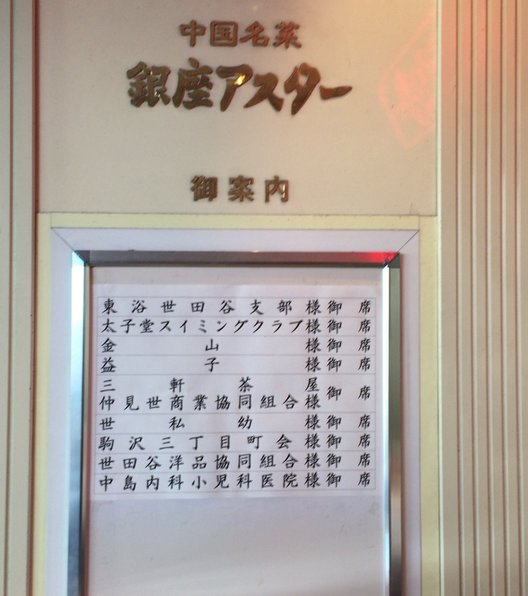 中国名菜
銀座アスター
御案内
東浴世田谷支部様御席
太子堂スイミングクラブ様御席
金山様御席
益子様御席
三軒茶屋
仲見世商業協同組合様御席
世私幼様御席
駒沢三丁目町会様御席
世田谷洋品協同組合様御席
中島内科小児科医院様御席